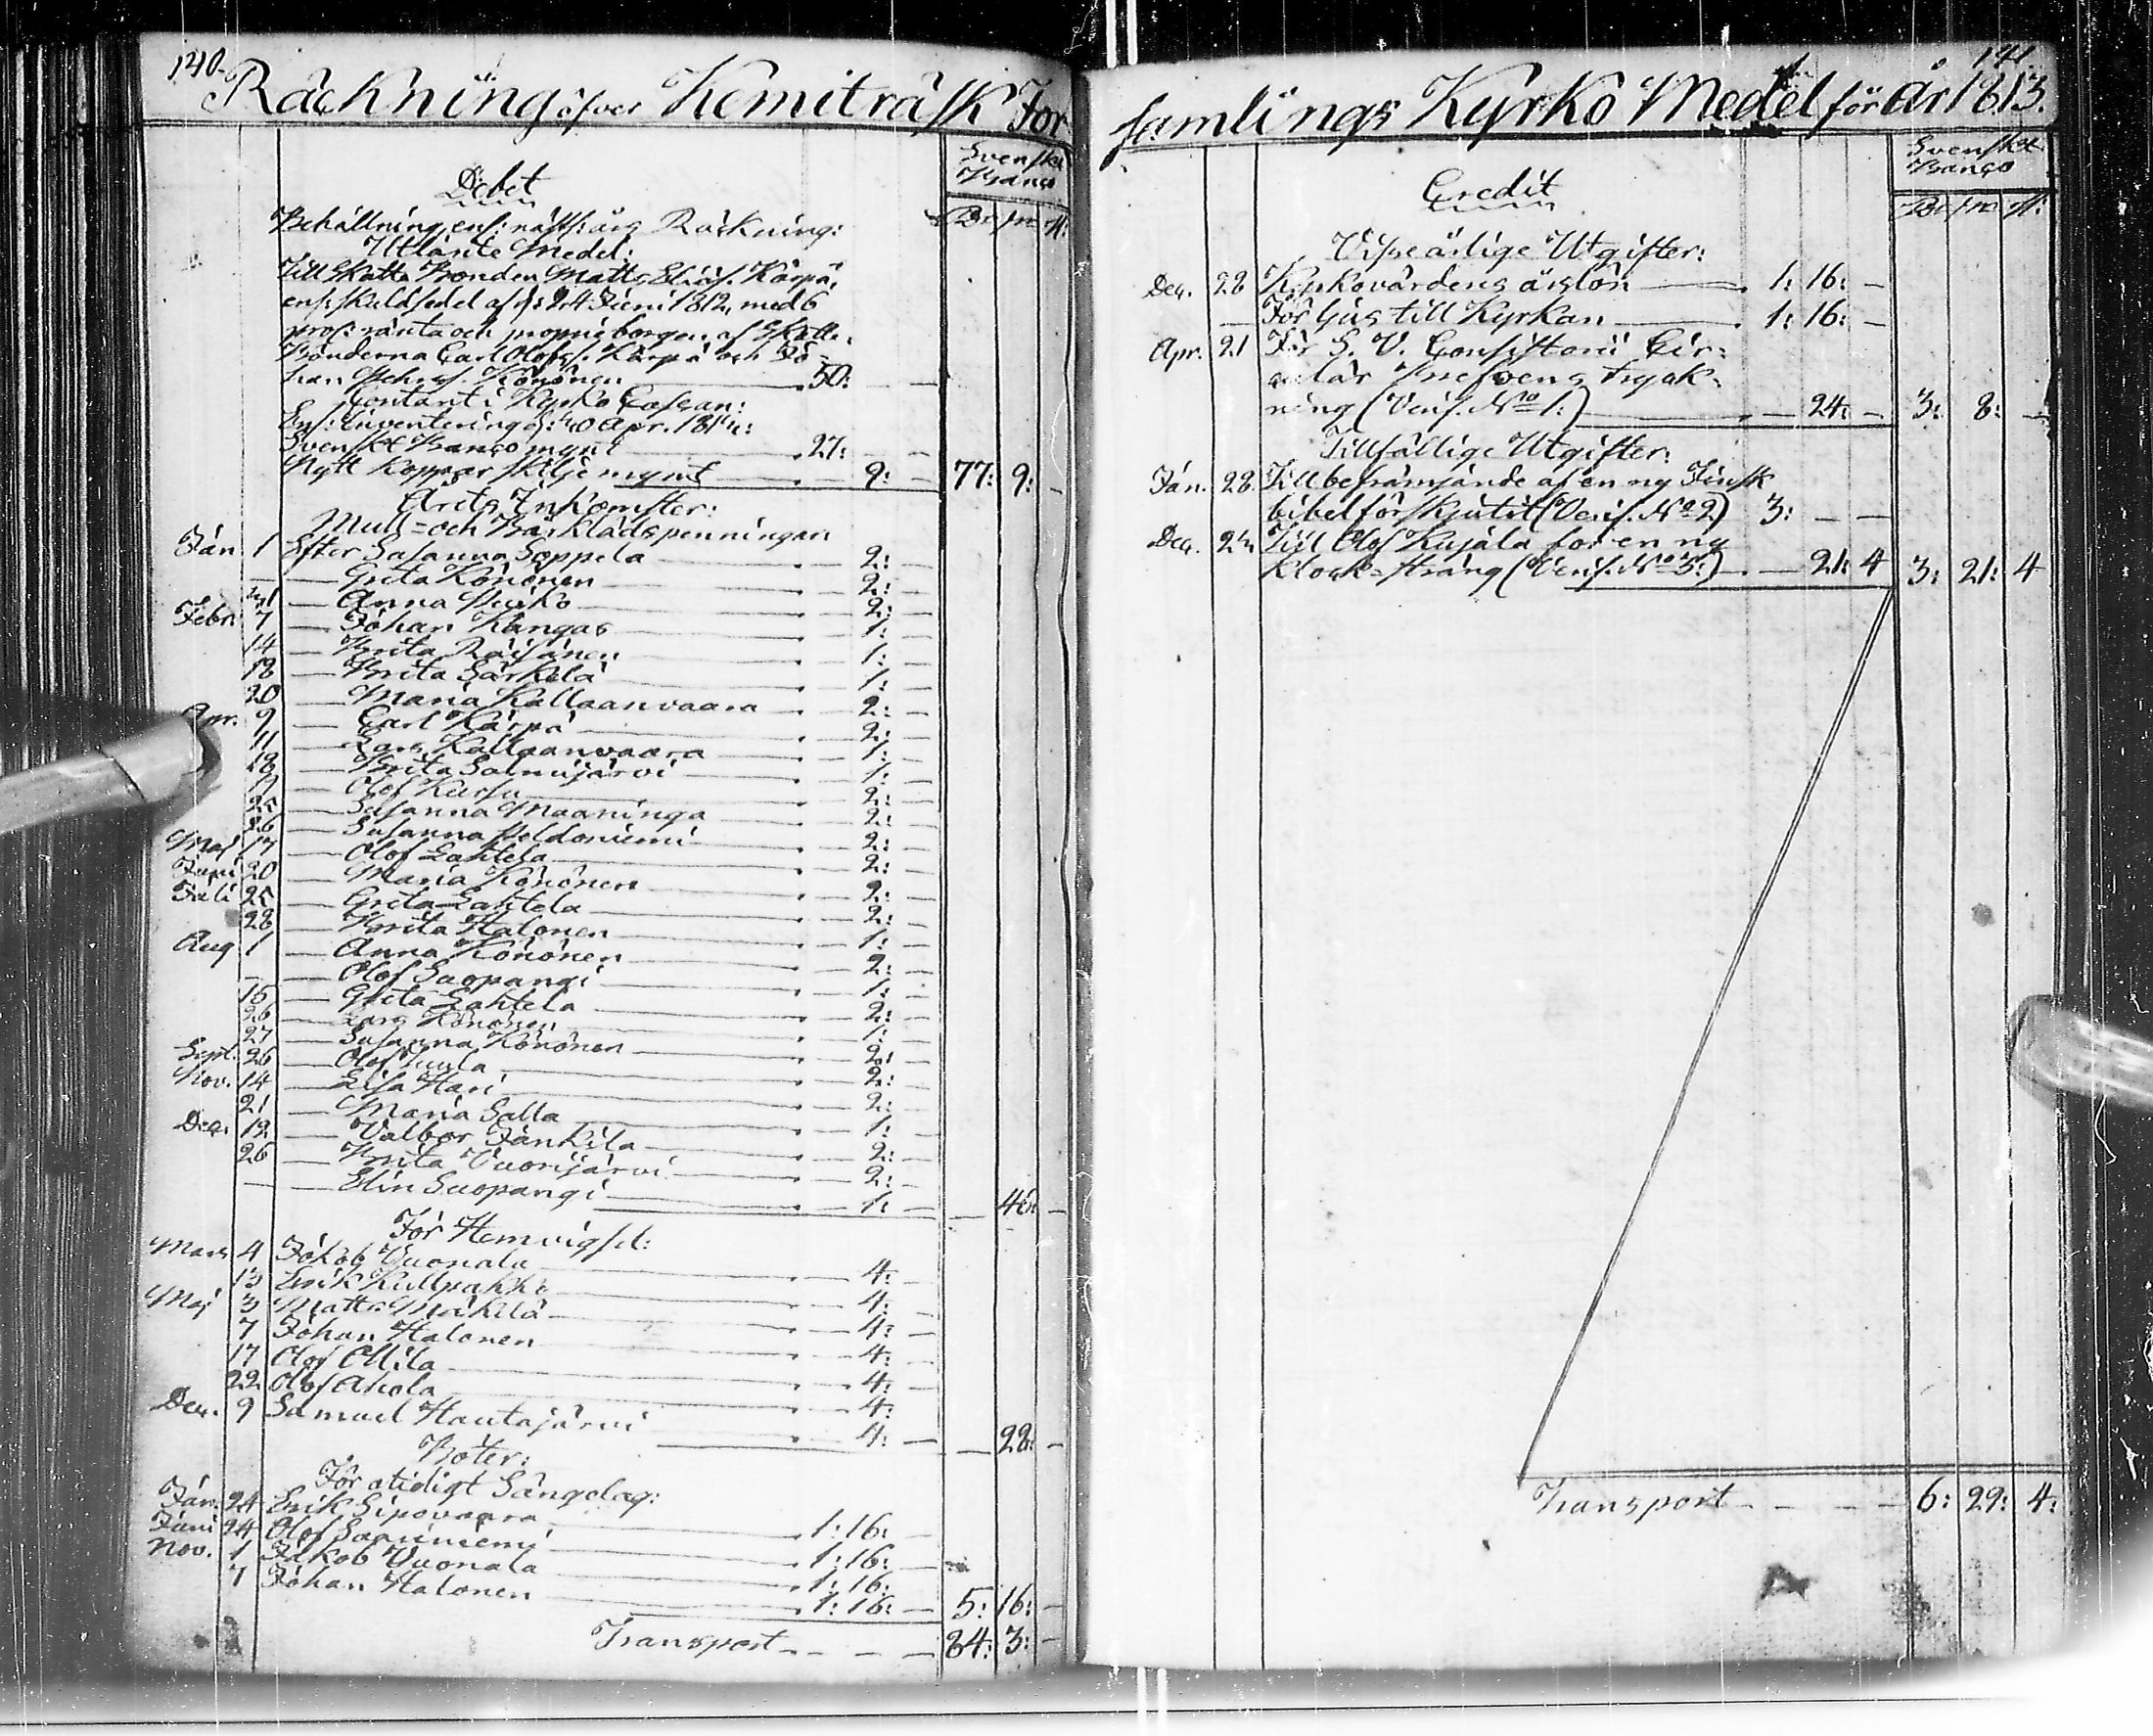 140.
Räckning öfver Kemiträsk För
Svenska
Banco
Debet
Behållning enl: nästl: års Räckning:
Utlånte Medel:
Till Skatte Bonden Matts Eliæs. Kärpä,
enl: skuldsedel af d: 24 Juni 1812, med 6
proc: ränta och proprie borgen af Skatte
Bönderna Carl Olofss. Kärpä och Jo-
han Pehrss. Könönen 50: —
Contant i Kyrko Cassan:
Enl: Inventering d: Apr. 181
Svenskt Banco mynt 27: —
Nytt Koppar skilje mynt 9: — 77: 9: —
Årets Inkomster:
Mull- och Bårklädspenningar:
Jan. 1 Efter Susanna Soppela 2: —
— — Greta Könönen 2: —
— Anna 2: —
Febr. 7 — Johan Kangas 1: —
14 — Brita Räisänen 1: —
18 — Brita Särkelä 1: —
20 — Maria Kallaanvaara 2: —
Apr. 9 — Carl Kärpä 2: —
11 — Lars Kallaanvaara 1: —
18 — Brita Salmijärvi 1: —
— Olof Kursu 2: —
25 — Susanna Maaninga 2: —
26 — Susanna Peldoniemi 2: —
Maj 17 — Olof Lahtela 2: —
Juni 20 — Maria Könönen 2: —
Juli 25 — Greta Lahtela 2: —
28 — Brita Halonen 1: —
Aug. 1 — Anna Könönen 2: —
— — Olof Suopangi 1: —
15 — Greta Lahtela 2: —
26 — Lars Könönen 1: —
27 — Susanna Könönen 2: —
Sept. 26 — Olof 2: —
Nov. 14 — Elsa Hari 2: —
21 — Maria Salla 1: —
Dec. 12 — Valbor Jankila 2: —
26 — Brita Vuorijärvi 2: —
— — Elin Suopangi 1: — — 46: —
För Hemvigsel:
Mars 4 Jakob Vuonala 4: —
13 Erik Kullpakko 4: —
Maj 3 Matts Mäkilä 4: —
7 Johan Halonen 4: —
17 Olof Ollila 4: —
22 Olof Ahola 4: —
Dec. 9 Samuel Hautajärvi 4: — — 28: —
Böter:
För otidigt Sängelag:
Jan. 24 Erik Sipovaara 1: 16: —
Juni 24 Olof Saariniemi 1: 16: —
Nov. 1 Jakob Vuonala 1: 16: —
7 Johan Halonen 1: 16: — 5: 16: —
Transport 84: 3: —
141.
samlings Kyrko Medel för år 1813.
Svenska
Banco
Credit
Visse årlige Utgifter:
Dec. 28 Kyrkovärdens årslön 1: 16: —
— För ljus till Kyrkan 1: 16: —
Apr. 21 För S. V. Consistorii Cir-
culär Brefvens tryck-
ning (Verif. No 1:) — 24: — 3: 8: —
Tillfällige Utgifter:
Jan. 28. Till befrämjande af en ny Finsk
bibel förskjutit (Verif. No 2) 3: — —
Dec. 24. Till Olof Kujala för en ny
Klock-sträng (Verif. No 3:) — 21: 4 3: 21: 4
Transport 6: 29: 4: